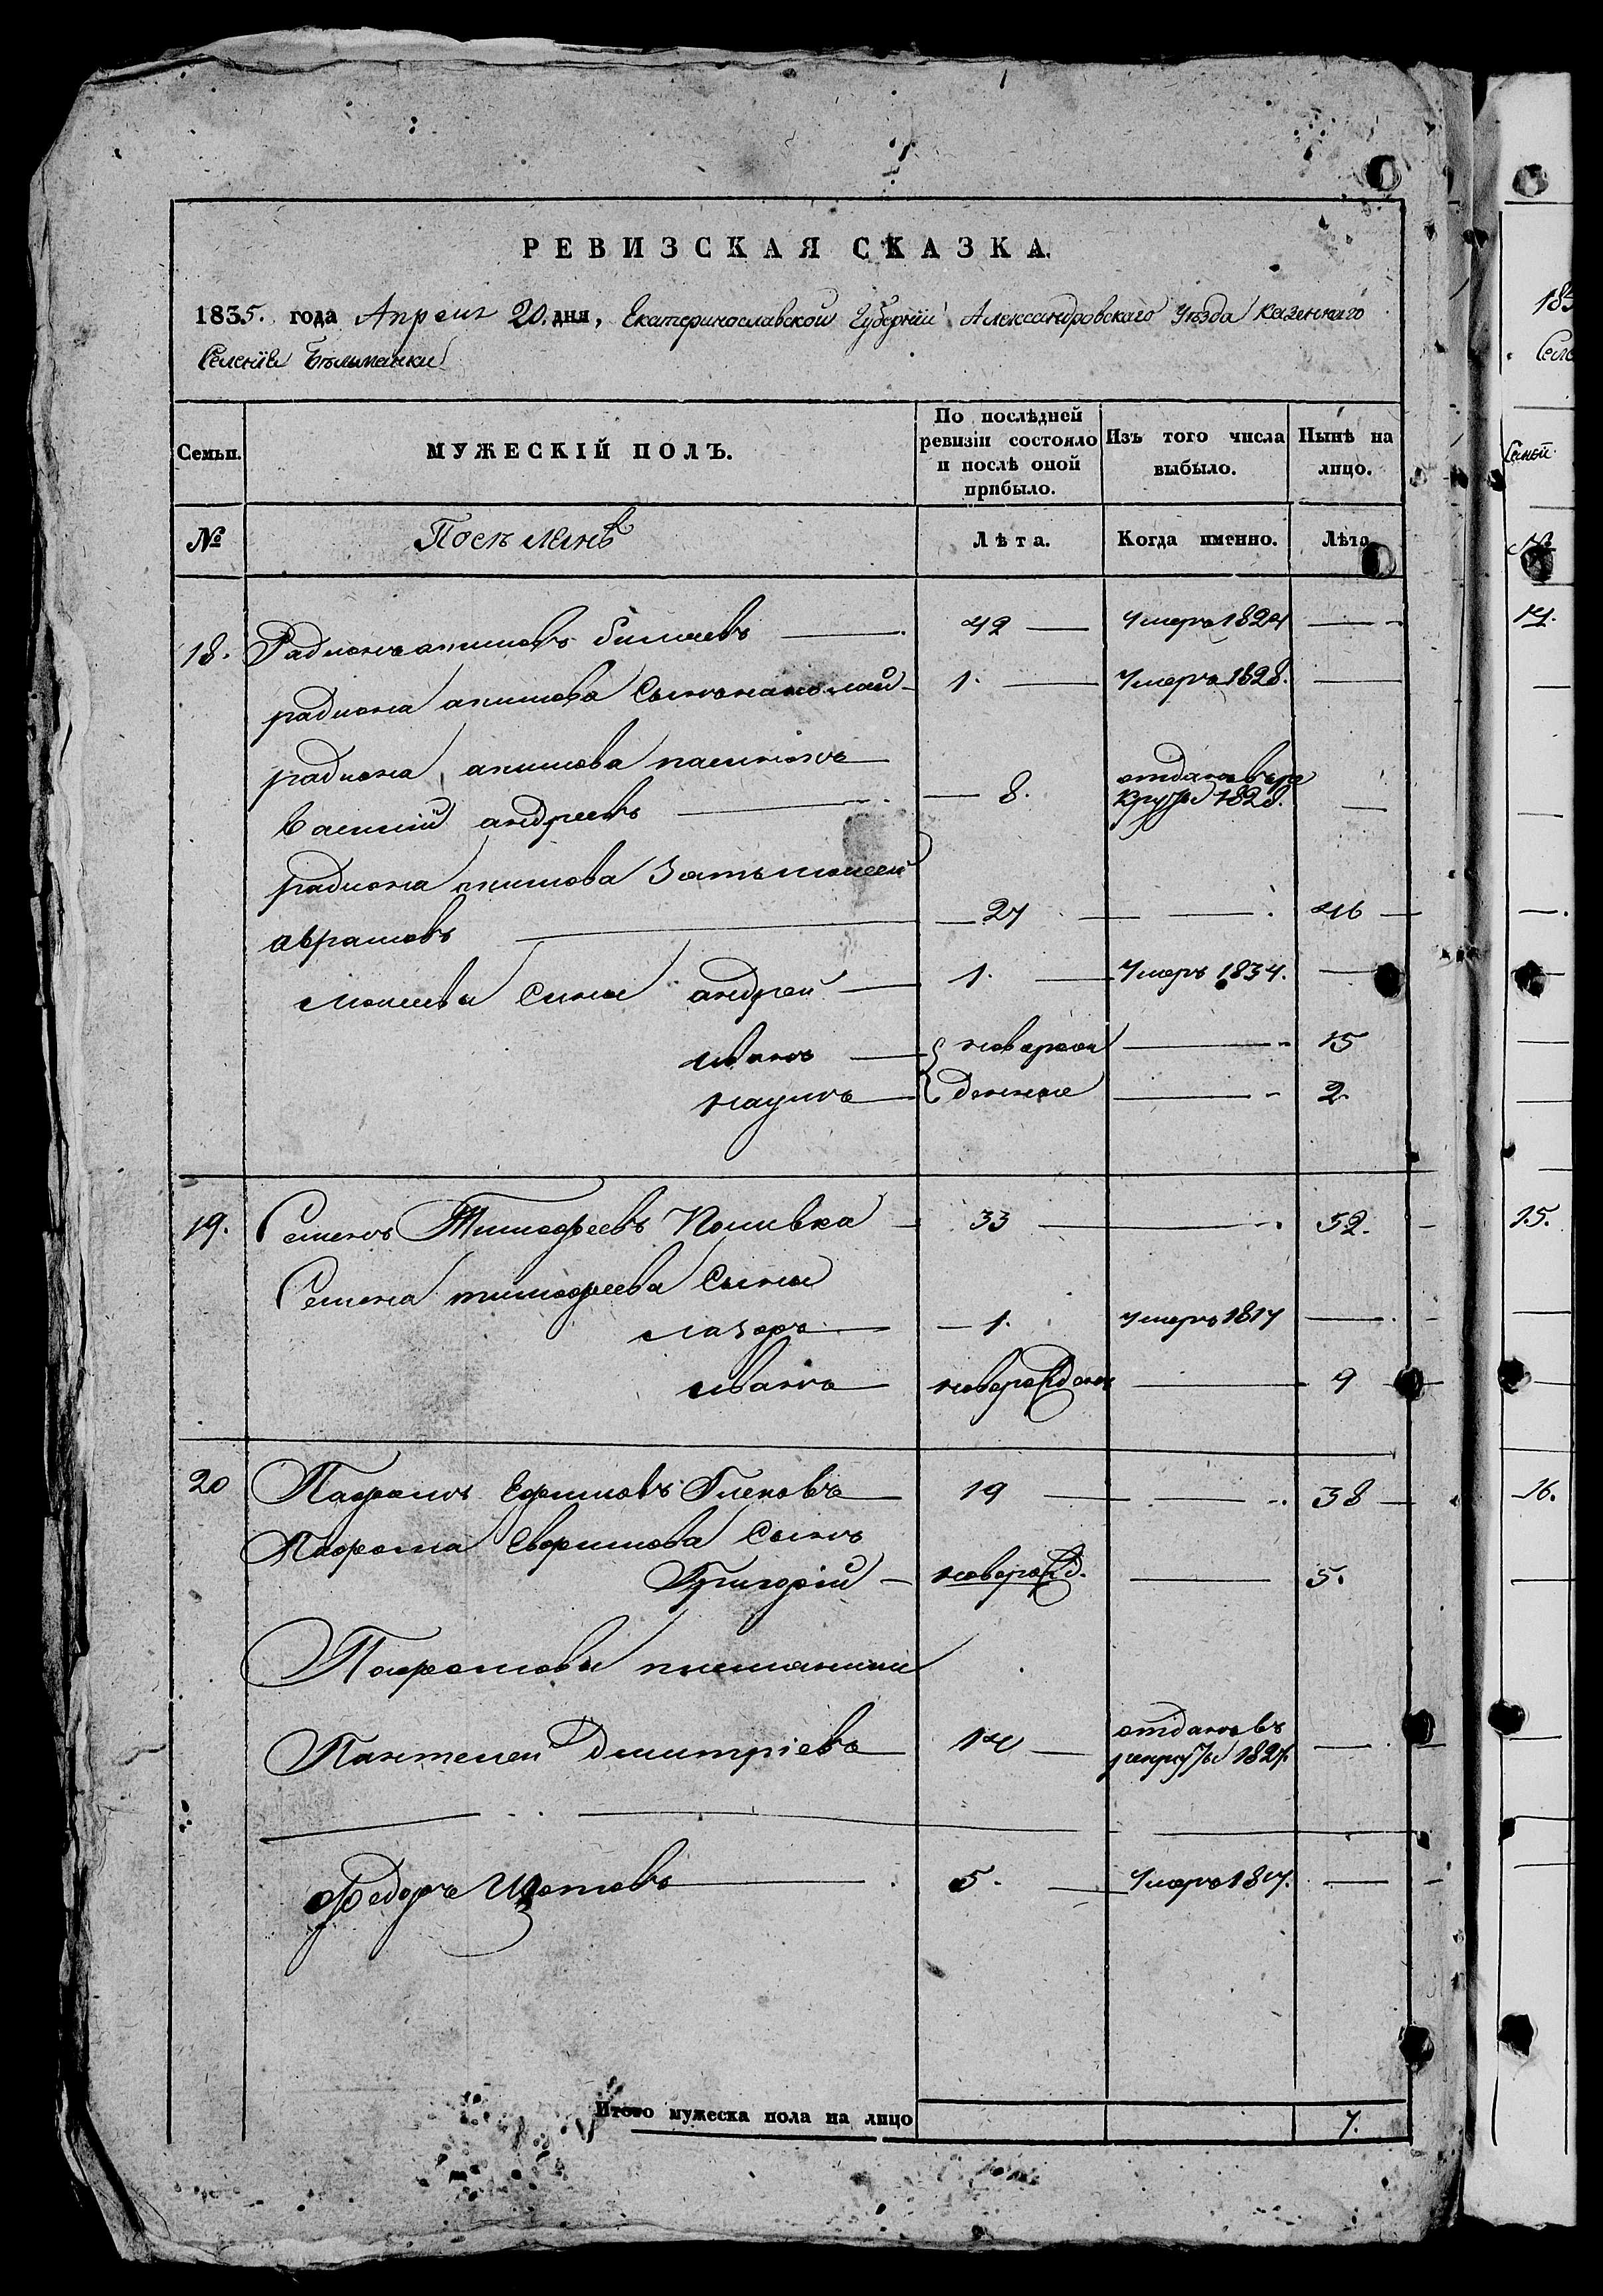 РЕВИЗСКАЯ СКАЗКА.
1835. года Апреля 20. дня, Екатеринославской Губернии Александровскаго Уѣзда казеннаго
Селенія Бѣльманки
Семьи. МУЖЕСКІЙ ПОЛЪ. По послѣдней ревизіи состояло и послѣ оной прибыло. Изъ того числа выбыло. Нынѣ на лицо.
№ Поселянѣ Лѣта. Когда именно. Лѣта
18. Радионъ акимовъ 42 Умеръ 1824
радиона акимова Сынъ 1. Умеръ 1828.
радиона акимова пасынокъ
Василій андреевъ 8. отданъ в ре
круты 1828.
радиона акимова Зять моисей
аврамовъ 27 46
моисеевы Сыны андрей 1. Умеръ 1834.
иванъ новорож 15
наумъ денные 2
19. Семенъ Тимофеевъ Поливка 33 52.
Семена тимофеева Сыны
лазорь 1. умеръ 1817
иванъ новорожденъ 9
20 Пафромъ Ефимовъ 19 38
Пафрома Евфимова Сынъ
Григорій новорожд. 5.
Пафромовы племянники
Пантелей Дмитріевъ 14 отданъ въ
рекруты 1827.
Федоръ 5. Умеръ 1817.
Итого мужеска пола на лицо 7.
183
Селе
Семьи
№
14.
15.
16.